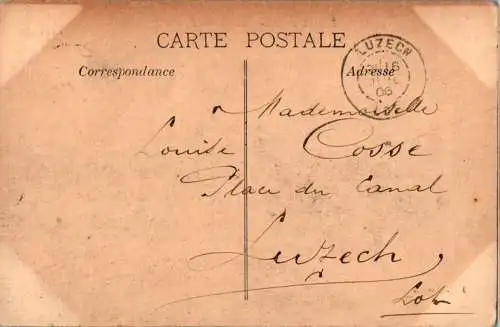 CARTE POSTALE
Correspondance
Adresse
LUZECH
16
06
à Mademoiselle
Louise Cosse
Place du Canal
Luzech
Lot